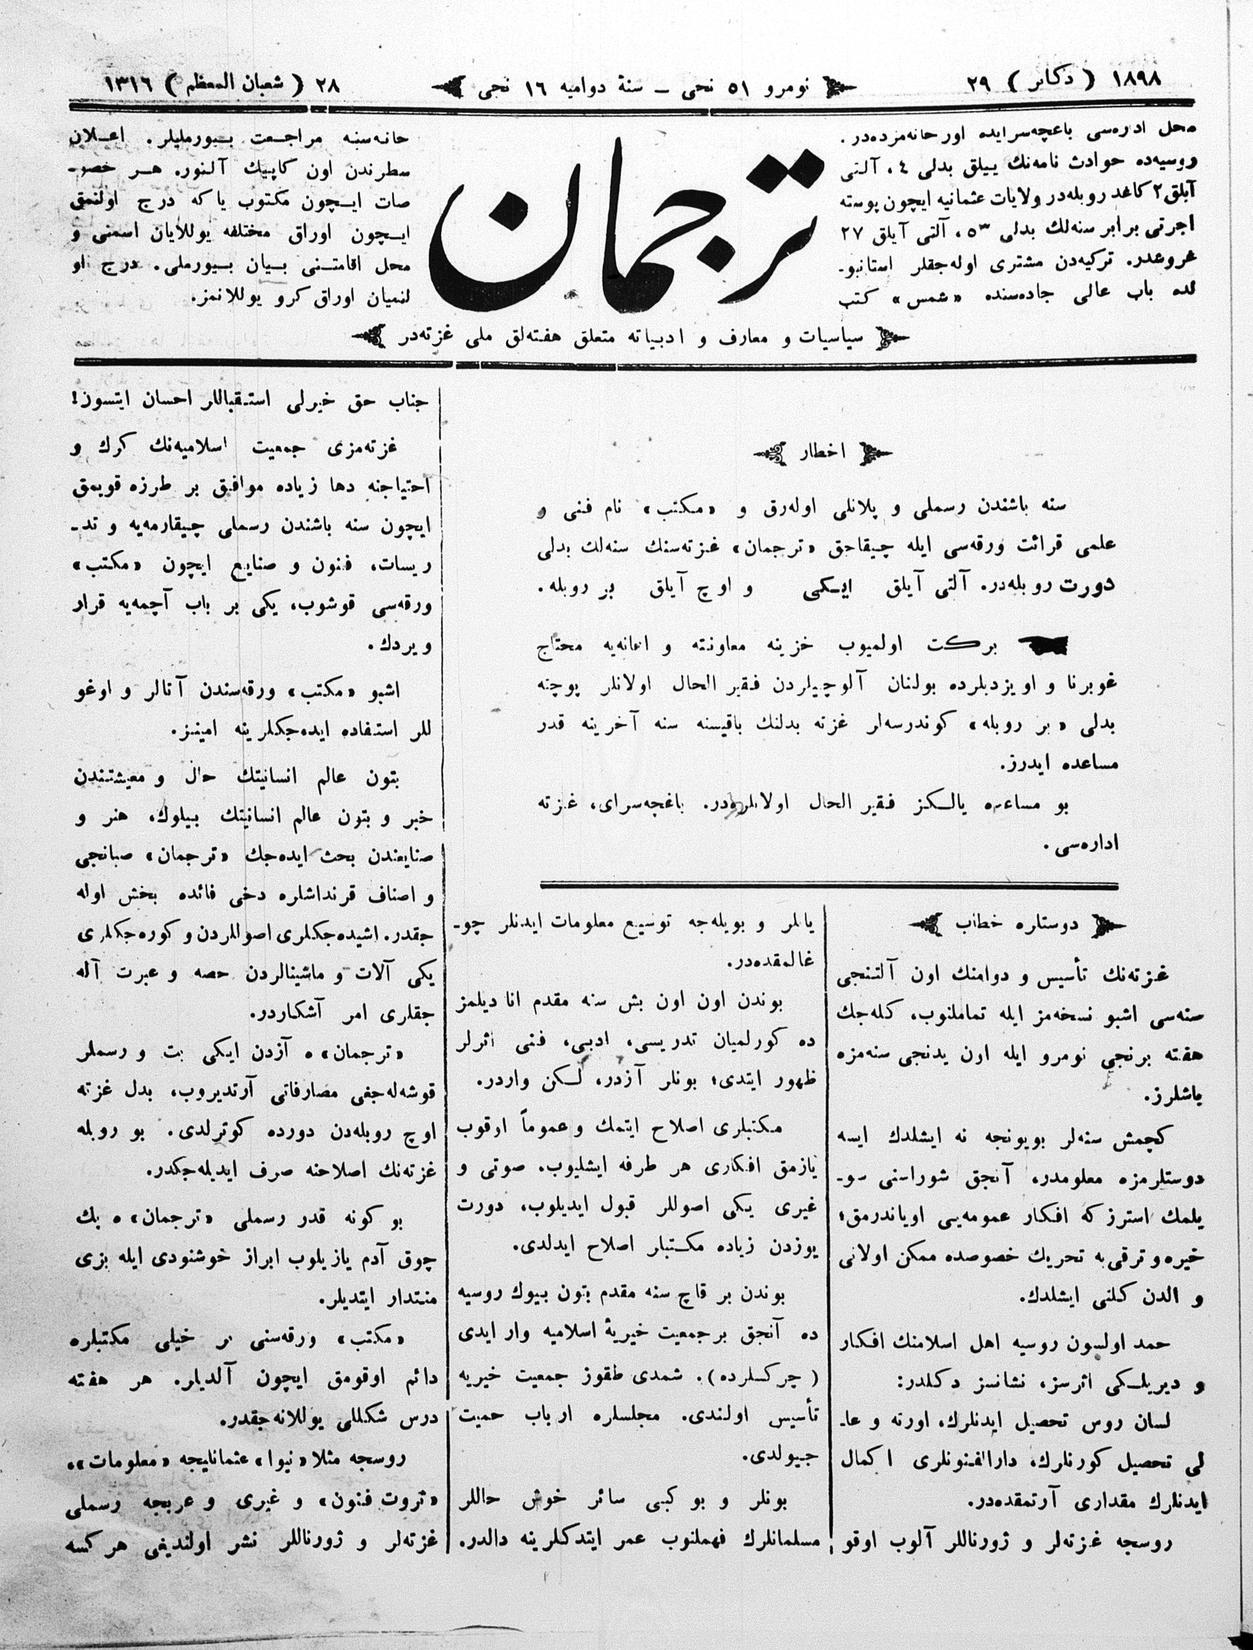 ١٨٩٨ ( دكابر ) ٢٩
نومرو ٥١ نجی ـ سنۀ دوامیه ١٦ نجی
٢٨ ( شعبان المعظم ) ١٣١٦
محل اداره‌سی باغچه‌سرایده اورخانه‌مزده‌در.
روسیه‌ده حوادث نامه‌نك ییلق بدلی ٤، آلتی
آیلق ٢ كاغد روبله‌در ولایات عثمانیه ایچون پوسته
اجرتی برابر سنه‌لك بدلی ٥٣، آلتی آیلق ٢٧
غروغدر. تركیه‌دن مشتری اوله‌جقلر استانبو-
لده باب عالی جاده‌سنده «شمس» كتب
ترجمان
حانه‌سنه مراجعت بیورملیلر. اعلان
سطرندن اون كاپیك آلنور. هر خصو-
صات ایچون مكتوب یاكه درج اولنمق
ایچون اوراق مختلفه یوللایان اسمنی و
محل اقامتنی بیان بیورملی. درج او
لنمیان اوراق كرو یوللانمز.
سیاسیات و معارف و ادبیاته متعلق هفته‌لق ملی غزته‌در
اخطار
سنه باشندن رسملی و پلانلی اوله‌رق و «مكتب» نام فنی و
علمی قرائت ورقه‌سی ایله چیقاجق «ترجمان» غزته‌سنك سنه‌لك بدلی
دورت روبله‌در. آلتی آیلق ایكی و اوچ آیلق بر روبله.
بركت اولمیوب خزینه معاونته و اعانه‌یه محتاج
غوبرنا و اویزدبلرده بولنان آلوچیلردن فقیر الحال اولانلر پوچته
بدلی «بر روبله» كوندرسه‌لر غزته بدلنك باقیسنه سنه آخرینه قدر
مساعده ایدرز.
بو مساعده یالكز فقیر الحال اولانلره‌در. باغچه‌سرای، غزته
اداره‌سی.
دوستاره خطاب
غزته‌نك تأسیس و دوامنك اون آلتنجی
سنه‌سی اشبو نسخه‌مز ایله تماملنوب، كله‌جك
هفته برنجی نومرو ایله اون یدنجی سنه‌مزه
باشلرز.
كچمش سنه‌لر بویونجه نه ایشلدك ایسه
دوستلرمزه معلومدر، آنجق شوراسنی سو-
یلمك استرز كه افكار عمومه‌یی اویاندرمق؛
خیره و ترقی‌یه تحریك خصوصده ممكن اولانی
و الدن كلنی ایشلدك.
حمد اولسون روسیه اهل اسلامنك افكار
و دیریلكی اثرسز، نشانسز دكلدر:
لسان روس تحصیل ایدنلرك، اورته و عا-
لی تحصیل كورنلرك، دارالفنونلری اكمال
ایدنلرك مقداری آرتمقده‌در.
روسجه غزته‌لر و ژورناللر آلوب اوقو
یانلر و بویله‌جه توسیع معلومات ایدنلر چو-
غالمقده‌در.
بوندن اون اون بش سنه مقدم انا دیلمز
ده كورلمیان تدریسی، ادبی، فنی اثرلر
ظهور ایتدی؛ بونلر آزدر، لكن واردر.
مكتبلری اصلاح ایتمك و عموماً ارقوب
یازمق افكاری هر طرفه ایشلیوب، صوتی و
غیری یكی اصوللر قبول ایدیلوب، دورت
یوزدن زیاده مكتبلر اصلاح ایدلدی.
بوندن بر قاچ سنه مقدم بتون بیوك روسیه
ده آنجق بر جمعیت خیریۀ اسلامیه وار ایدی
(چركسلرده). شمدی طقوز جمعیت خیریه
تأسیس اولندی. مجلسلره ارباب حمیت
جیولدی.
بونلر و بو كبی سائر خوش حاللر
مسلمانلرك فهملنوب عمر ایتدكلرینه دالدر.
جناب حق خیرلی استقباللر احسان ایتسون!
غزته‌مزی جمعیت اسلامیه‌نك كرك و
احتیاجنه دها زیاده موافق بر طرزه قویمق
ایچون سنه باشندن رسملی چیقارمه‌یه و تد-
ریسات، فنون و صنایع ایچون «مكتب»
ورقه‌سی قوشوب، یكی بر باب آچمه‌یه قرار
ویردك.
اشبو «مكتب» ورقه‌سندن آنالر و اوغو
للر استفاده ایده‌جكلرینه امینز.
بتون عالم انسانیتك حال و معیشتندن
خبر و بتون عالم انسانیتك بیلوك، هنر و
صنایعندن بحث ایده‌جك «ترجمان» صبانجی
و اصناف قرنداشلره دخی فائده بخش اوله
جقدر. اشیده‌جكلری اصوللردن و كوره‌جكلری
یكی آلات و ماشینالردن حصه و عبرت آله
جقلری امر آشكاردر.
«ترجمان» ه آزدن ایكی بت و رسملر
قوشه‌له‌جغی مصارفاتی آرتدیروب، بدل غزته
اوچ روبله‌دن دورده كوترلدی. بو روبله
غزته‌نك اصلاحنه صرف ایدیله‌جكدر.
بو كونه قدر رسملی «ترجمان» ه بك
چوق آدم یازیلوب ابراز خوشنودی ایله بزی
منتدار ایتدیلر.
«مكتب» ورقه‌سنی بر خیلی مكتبلره
دائم اوقومق ایچون آلدیلر. هر هفته
درس شكللی یوللانه‌جقدر.
روسجه مثلا «نیوا» عثمانلیجه «معلومات»،
«ثروت فنون» و غیری و عربجه رسملی
غزته‌لر و ژورناللر نشر اولندیغی هركسه